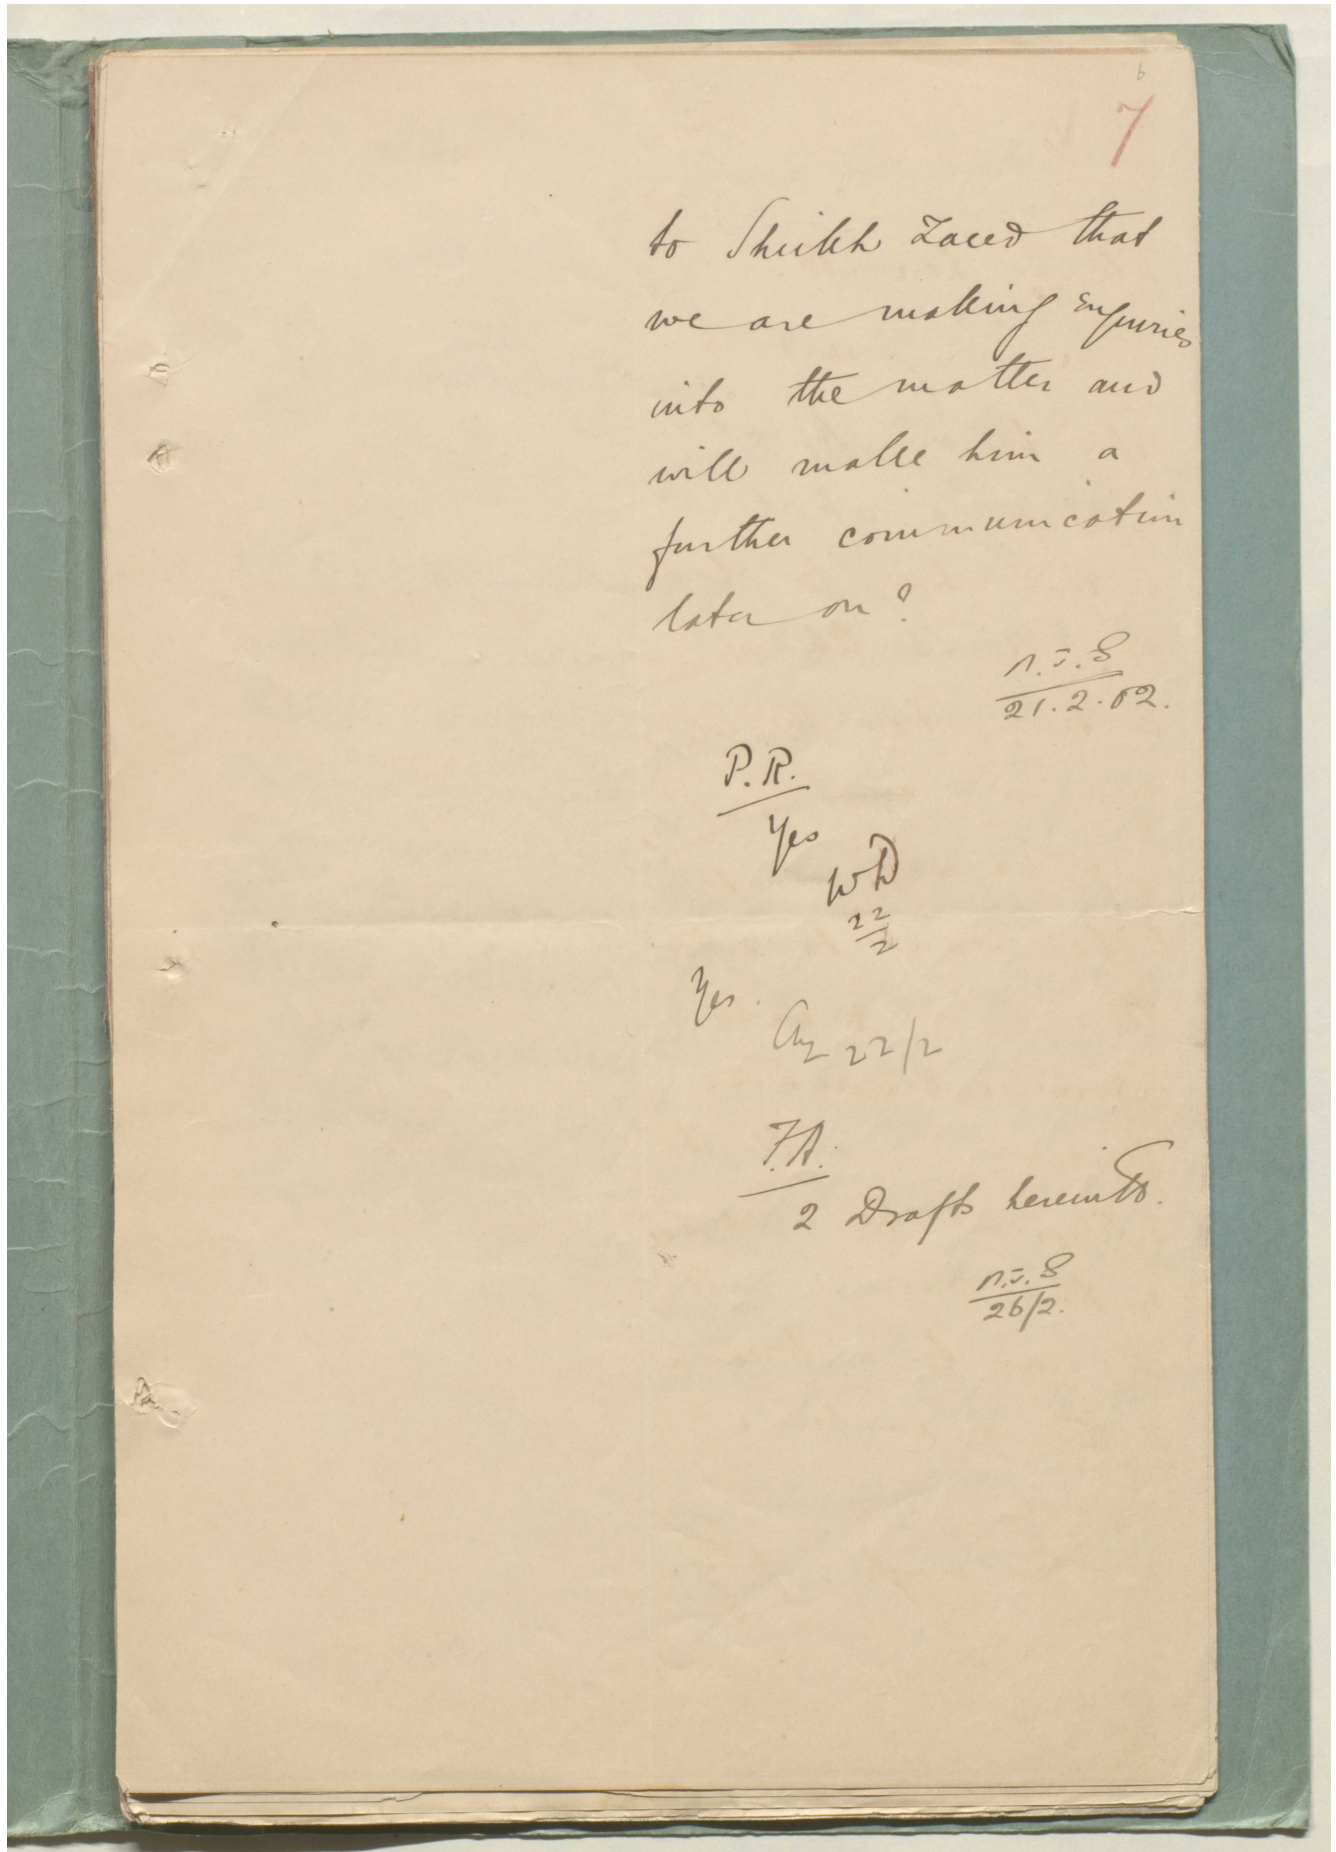 6
7
to Sheikh Zaeed that
we are making enquiries
into the matter and
will make him a
further communication
later on?
21.2.02.
P.R.
Yes
WD
22
2
Yes.
22/2
F.A.
2 Drafts herewith.
26/2.